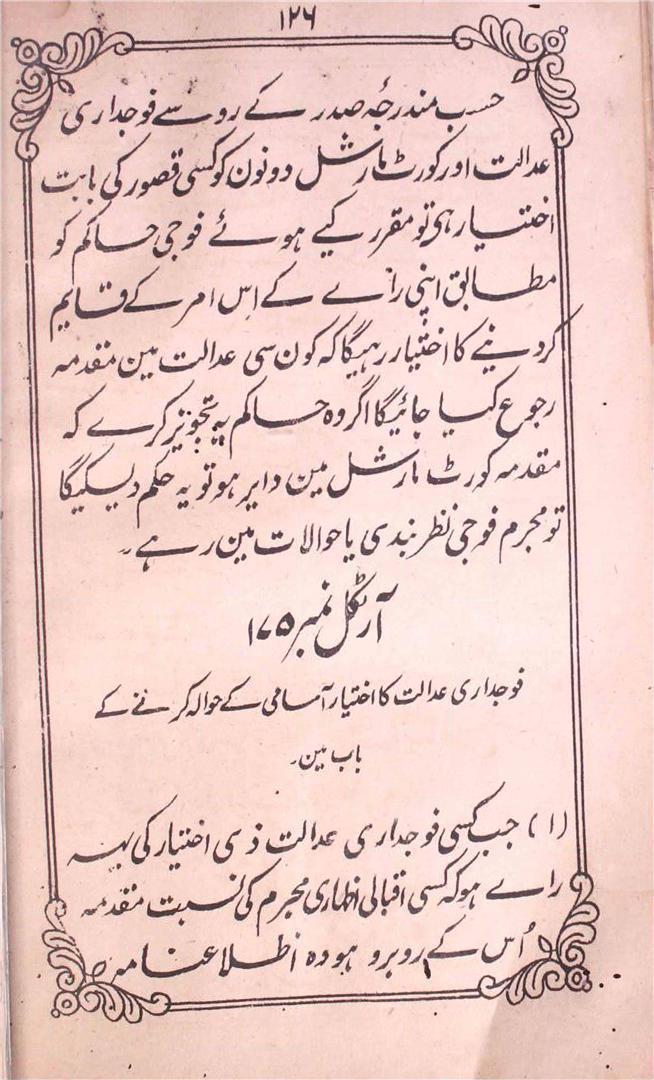 ۱۲۶
حسب مندرجۂ صدر کے رو سے فوجداری
عدالت اور کورٹ مارشل دونون کو کسی قصور کی بابت
اختیار ہی تو مقرر کیے ہوئے فوجی حاکم کو
مطابق اپنی راے کے اِس امر کے قایم
کردینے کا اختیار رہیگا کہ کون سی عدالت مین مقدمہ
رجوع کیا جائیگا اگر وہ حاکم یہ تجویز کرے کہ
مقدمہ کورٹ مارشل مین دایر ہو تو یہ حکم دیسکیگا
تو مجرم فوجی نظر بندی یا حوالات مین رہے۔
آرٹکل نمبر ۱۷۵
فوجداری عدالت کا اختیار آسامی کے حوالہ کرنے کے
باب مین۔
(۱) جب کسی فوجداری عدالت ذی اختیار کی یہہ
راے ہو کہ کسی اقبالی اظہاری مجرم کی نسبت مقدمہ
اُس کے روبرو ہو وہ اطلاعنامہ